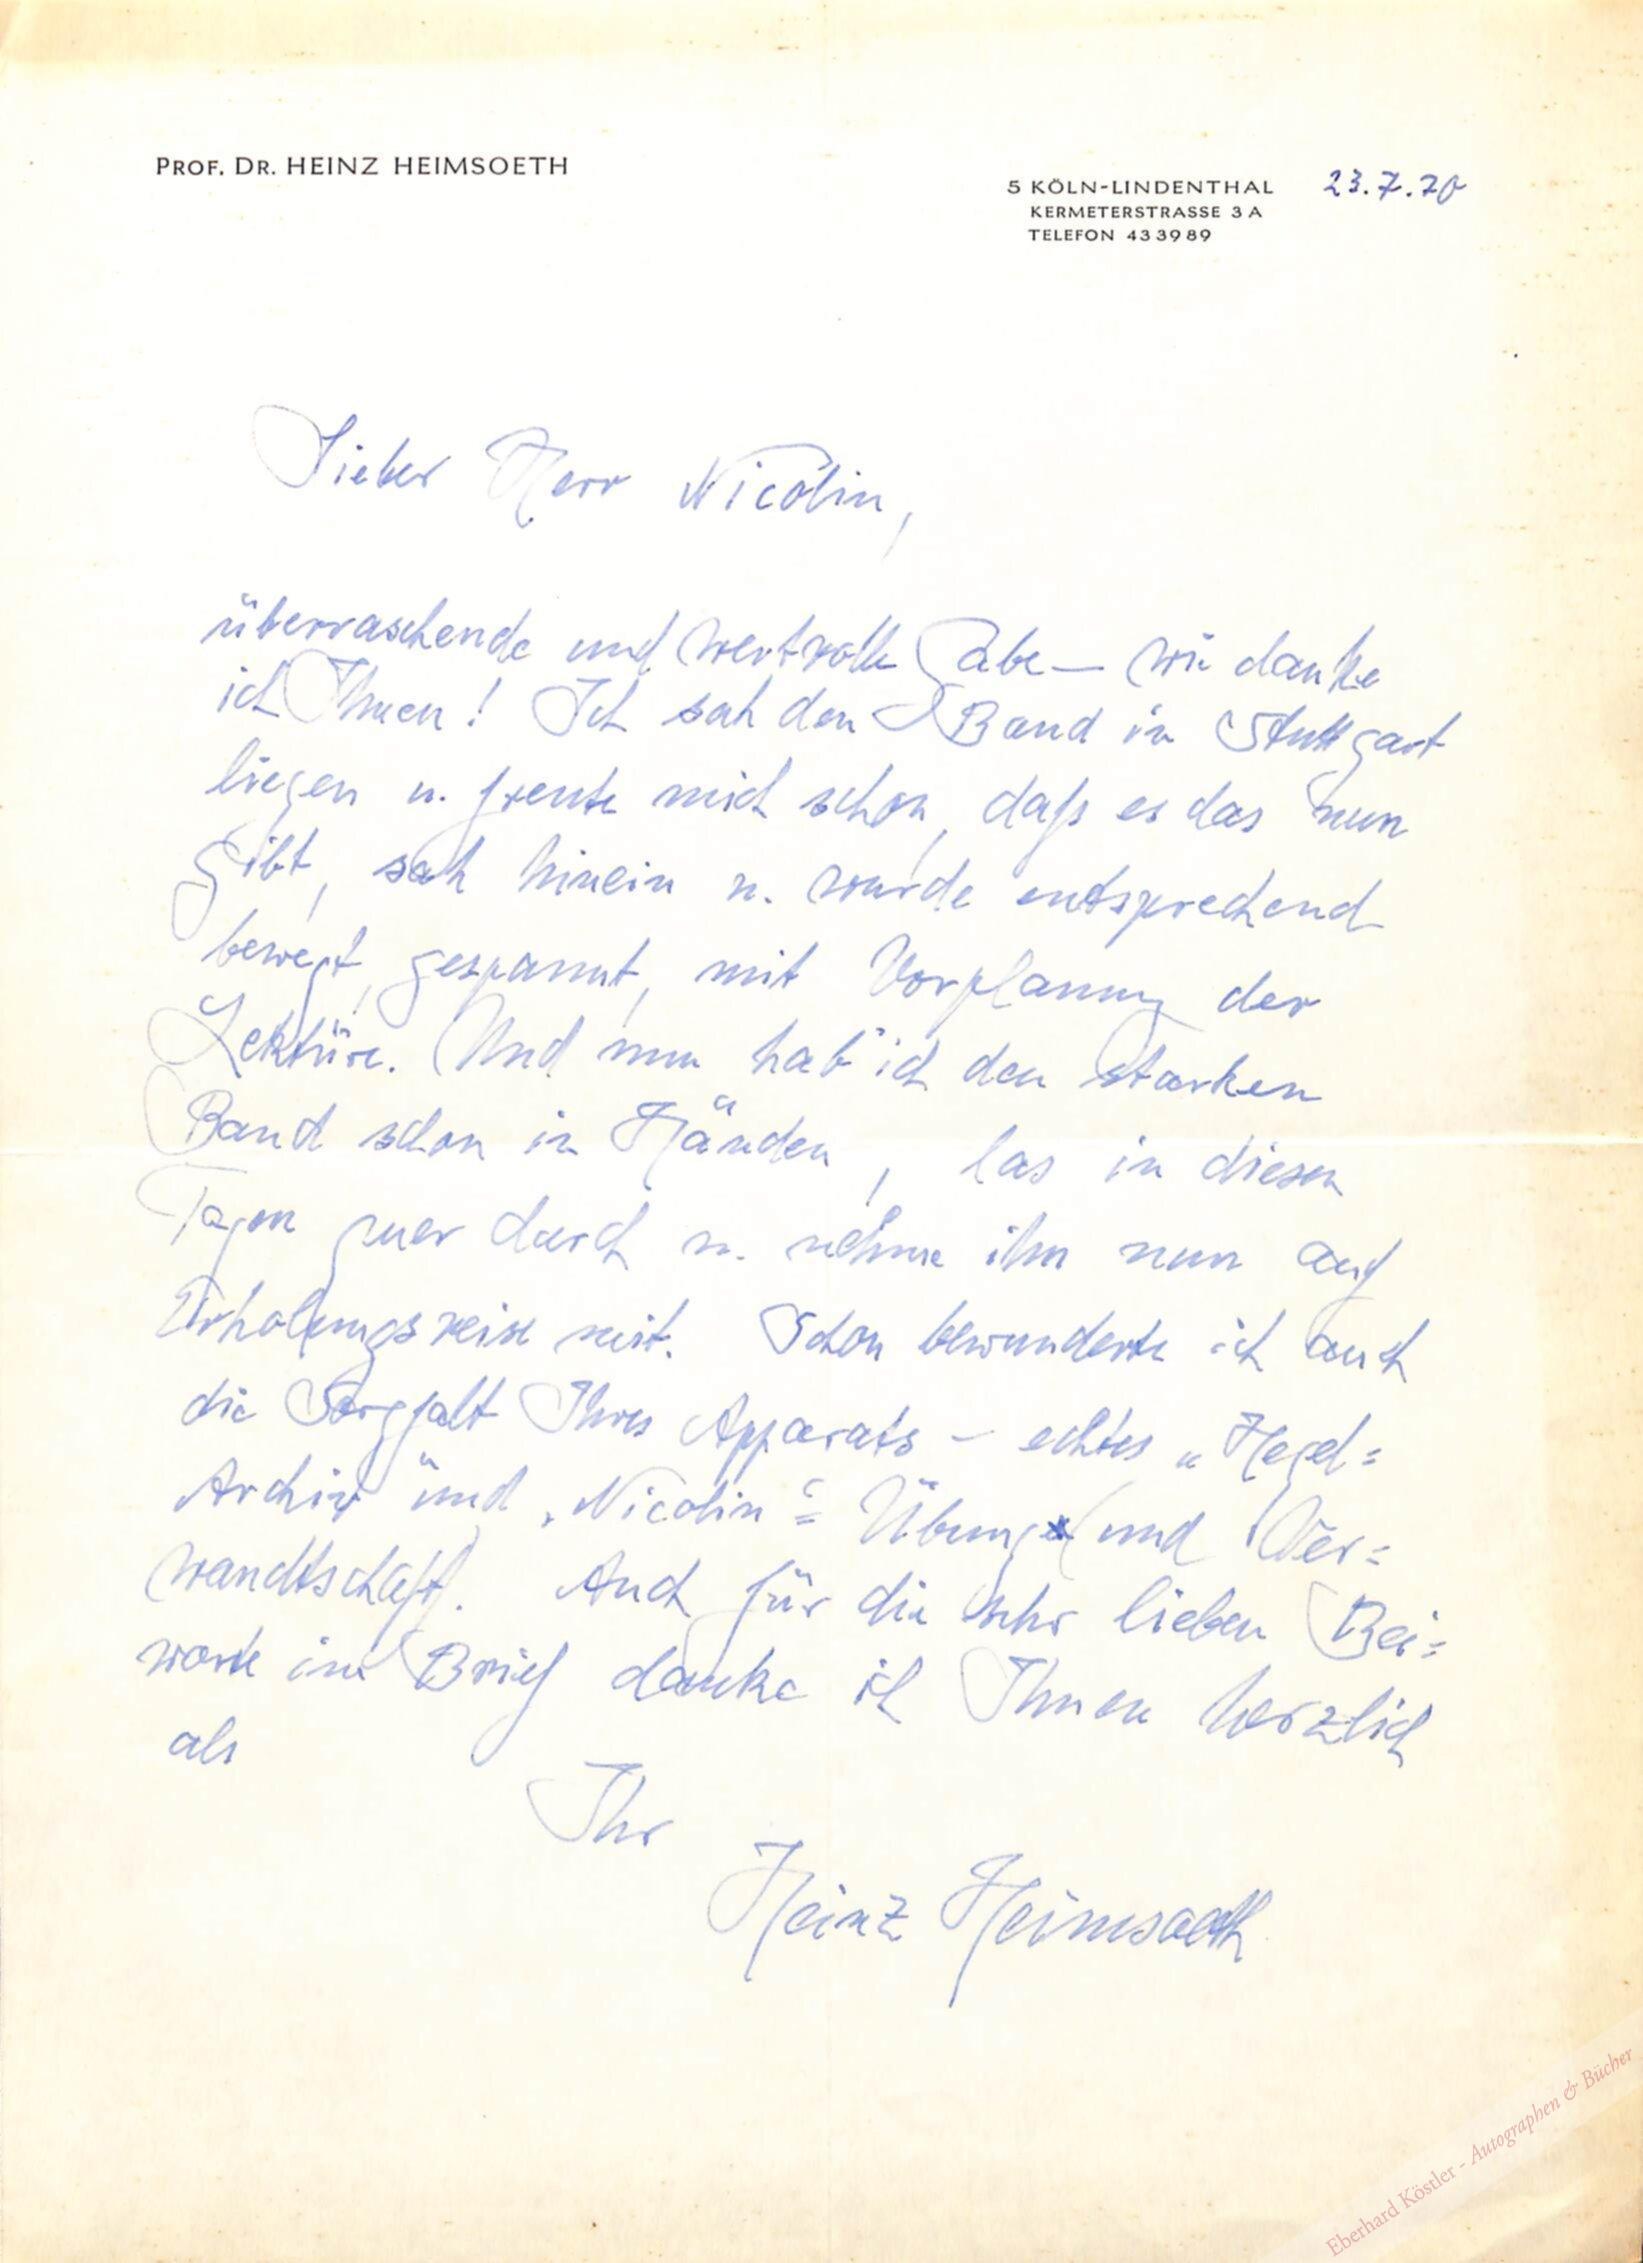 PROF. DR. HEINZ HEIMSOETH
5 KÖLN-LINDENTHAL 23.7.70
KERMETERSTRASSE 3 A
TELEFON 43 39 89
Lieber Herr Nicolin,
überraschende und wertvolle Gabe — wie danke
ich Ihnen! Ich sah den Band in Stuttgart
liegen u. freute mich schon, daß es das nun
gibt, sah hinein u. wurde entsprechend
bewegt, gespannt, mit Vorplanung der
Lektüre. Und nun hab' ich den starken
Band schon in Händen, las in diesen
Tagen quer durch u. nehme ihn nun auf
Erholungsreise mit. Schon bewunderte ich auch
die Sorgfalt Ihres Apparats – echtes „Hegel=
Archiv" und „Nicolin"= Übung und Ver=
wandtschaft. Auch für die sehr lieben Bei=
worte im Brief danke ich Ihnen herzlich
als
Ihr
Heinz Heimsoeth
Eberhard Köstler - Autographen & Bücher